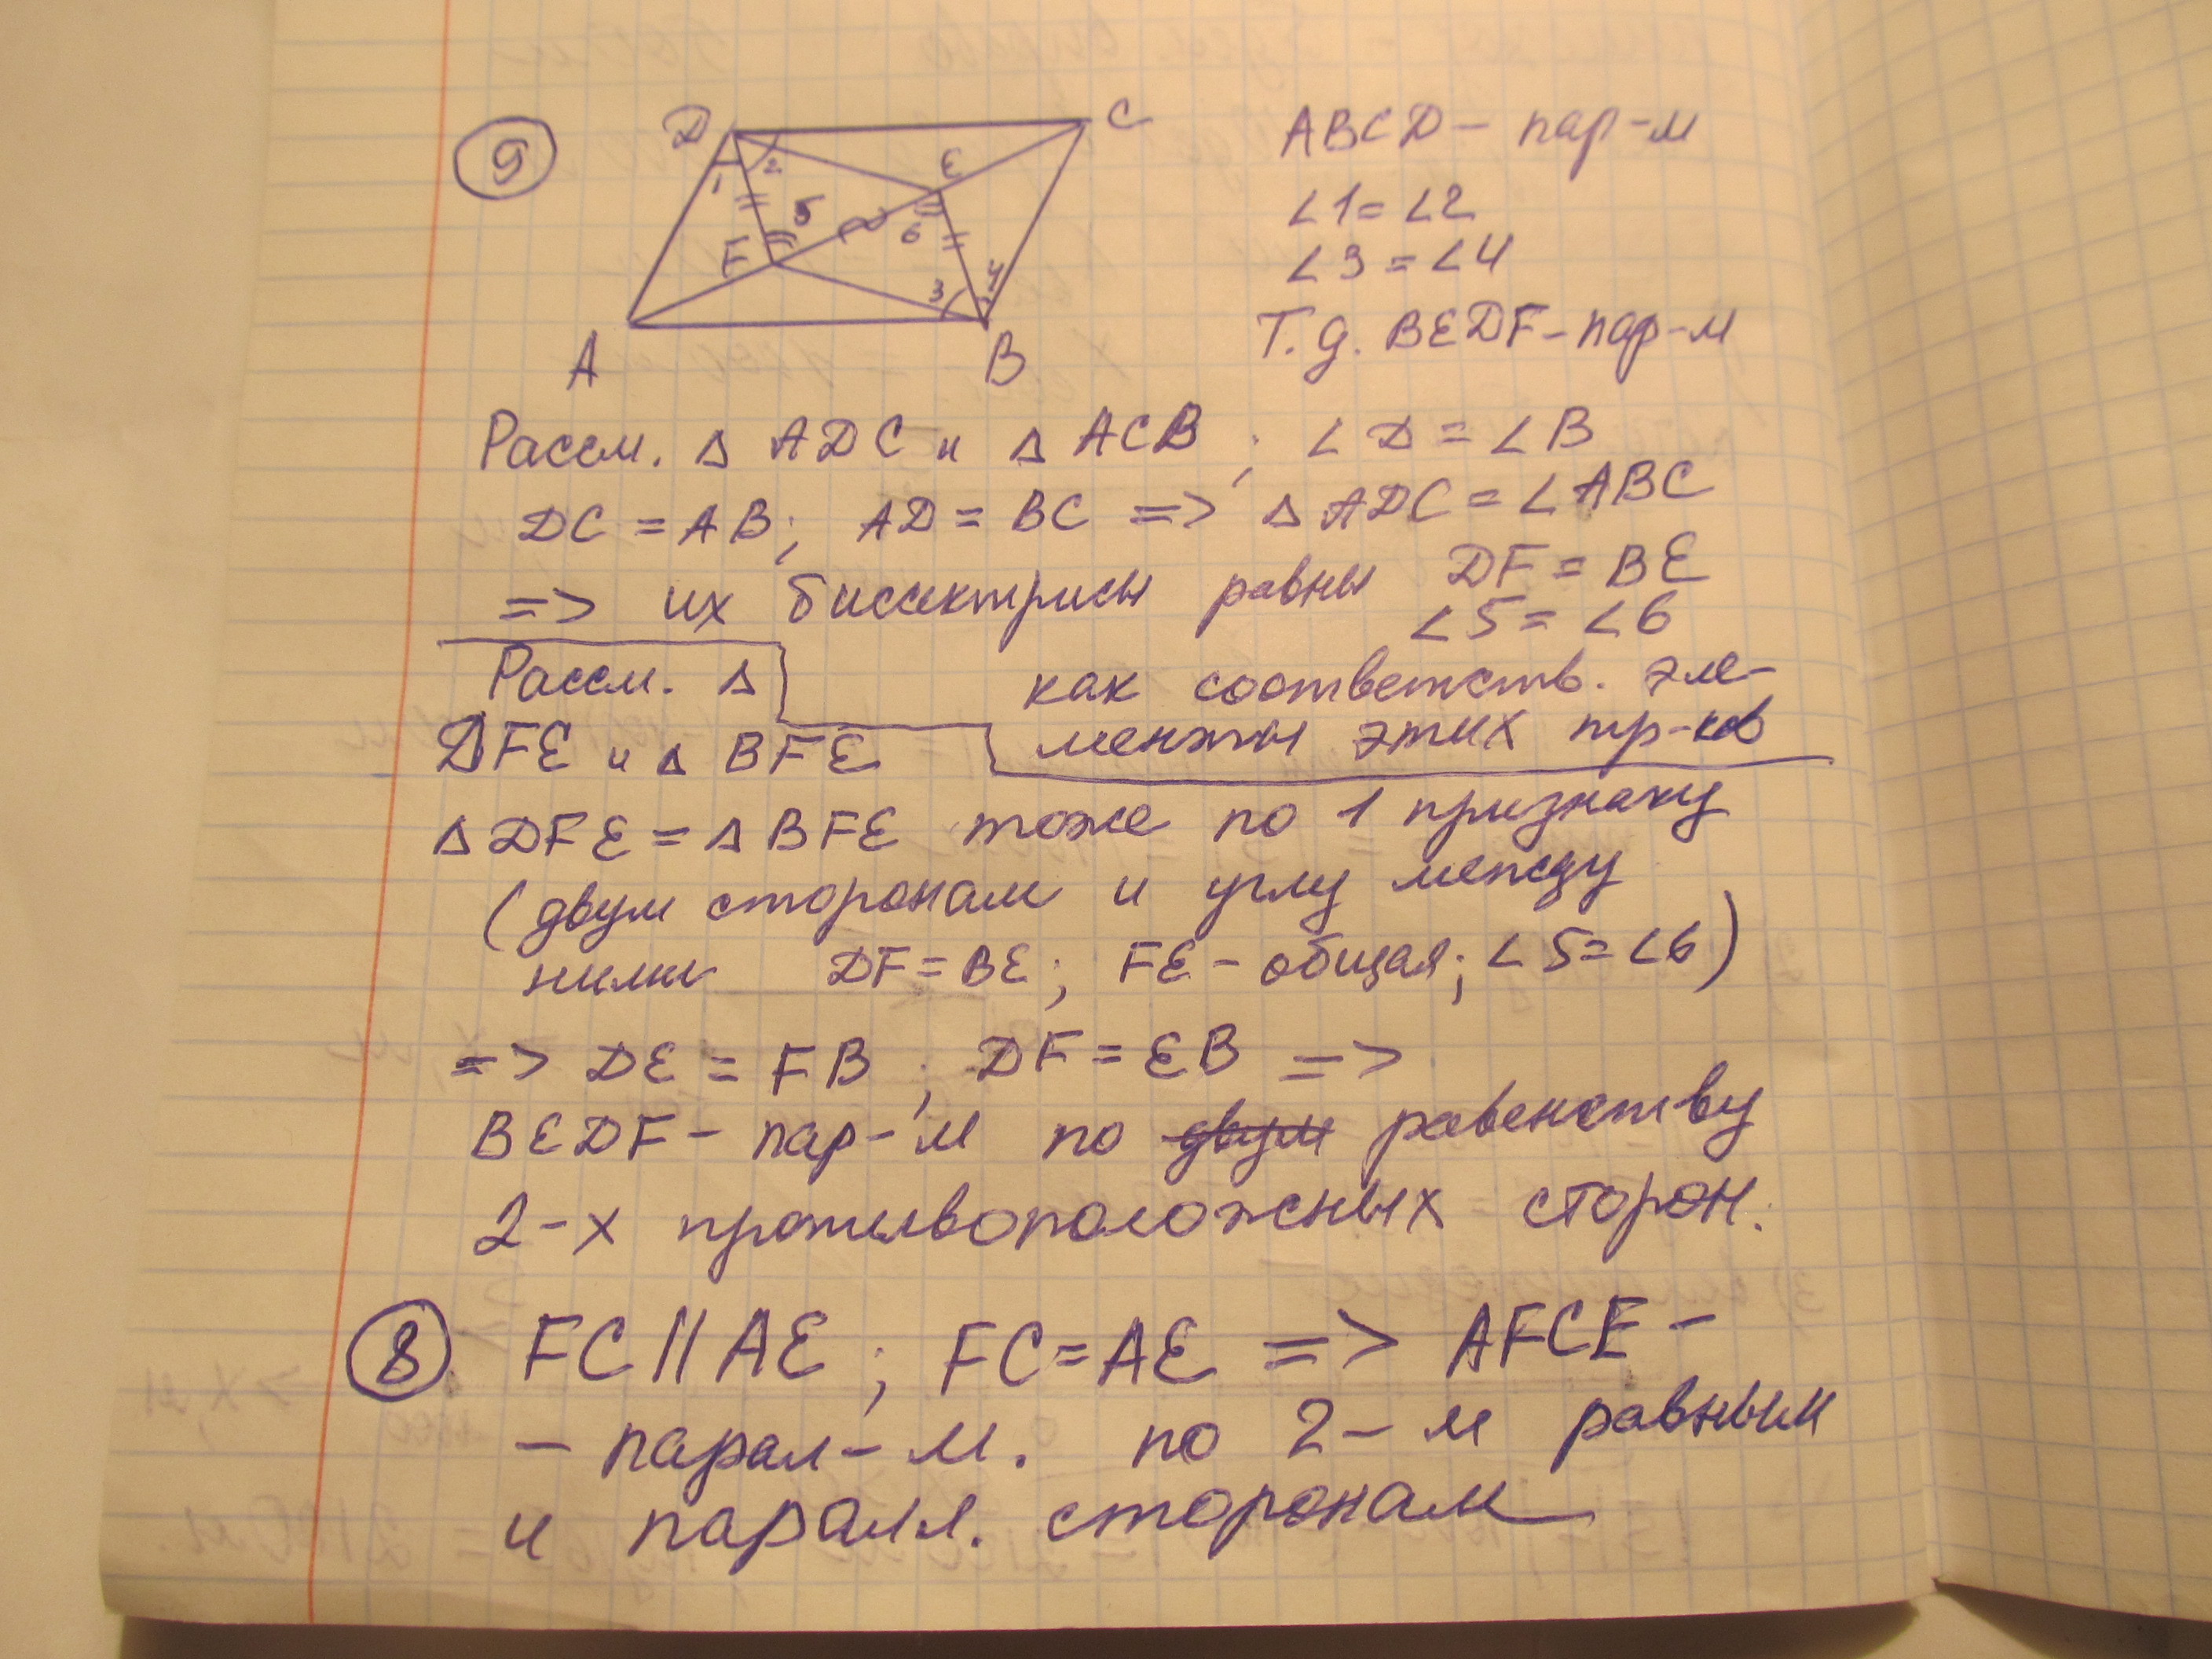 9
D
C
E
1
2
5
6
F
3
4
A
B
ABCD - пар-м
∠1=∠2
∠3=∠4
Т.д. BEDF-пар-м
Рассм. Δ ADC и Δ ACB ; ∠D = ∠B
DC = AB; AD = BC => Δ ADC = ∠ABC
=> их биссектрисы равны DF = BE
∠5 = ∠6
как соответств. эле-
менты этих тр-ков
Рассм. Δ
DFE и Δ BFE
Δ DFE = Δ BFE тоже по 1 признаку
(двум сторонам и углу между
ними DF = BE; FE - общая; ∠5=∠6)
=> DE = FB ; DF = EB =>
BEDF - пар-м по двум равенству
2-х противоположных сторон.
8 FC || AE ; FC = AE => AFCE -
- парал-м. по 2-м равным
и паралл. сторонам